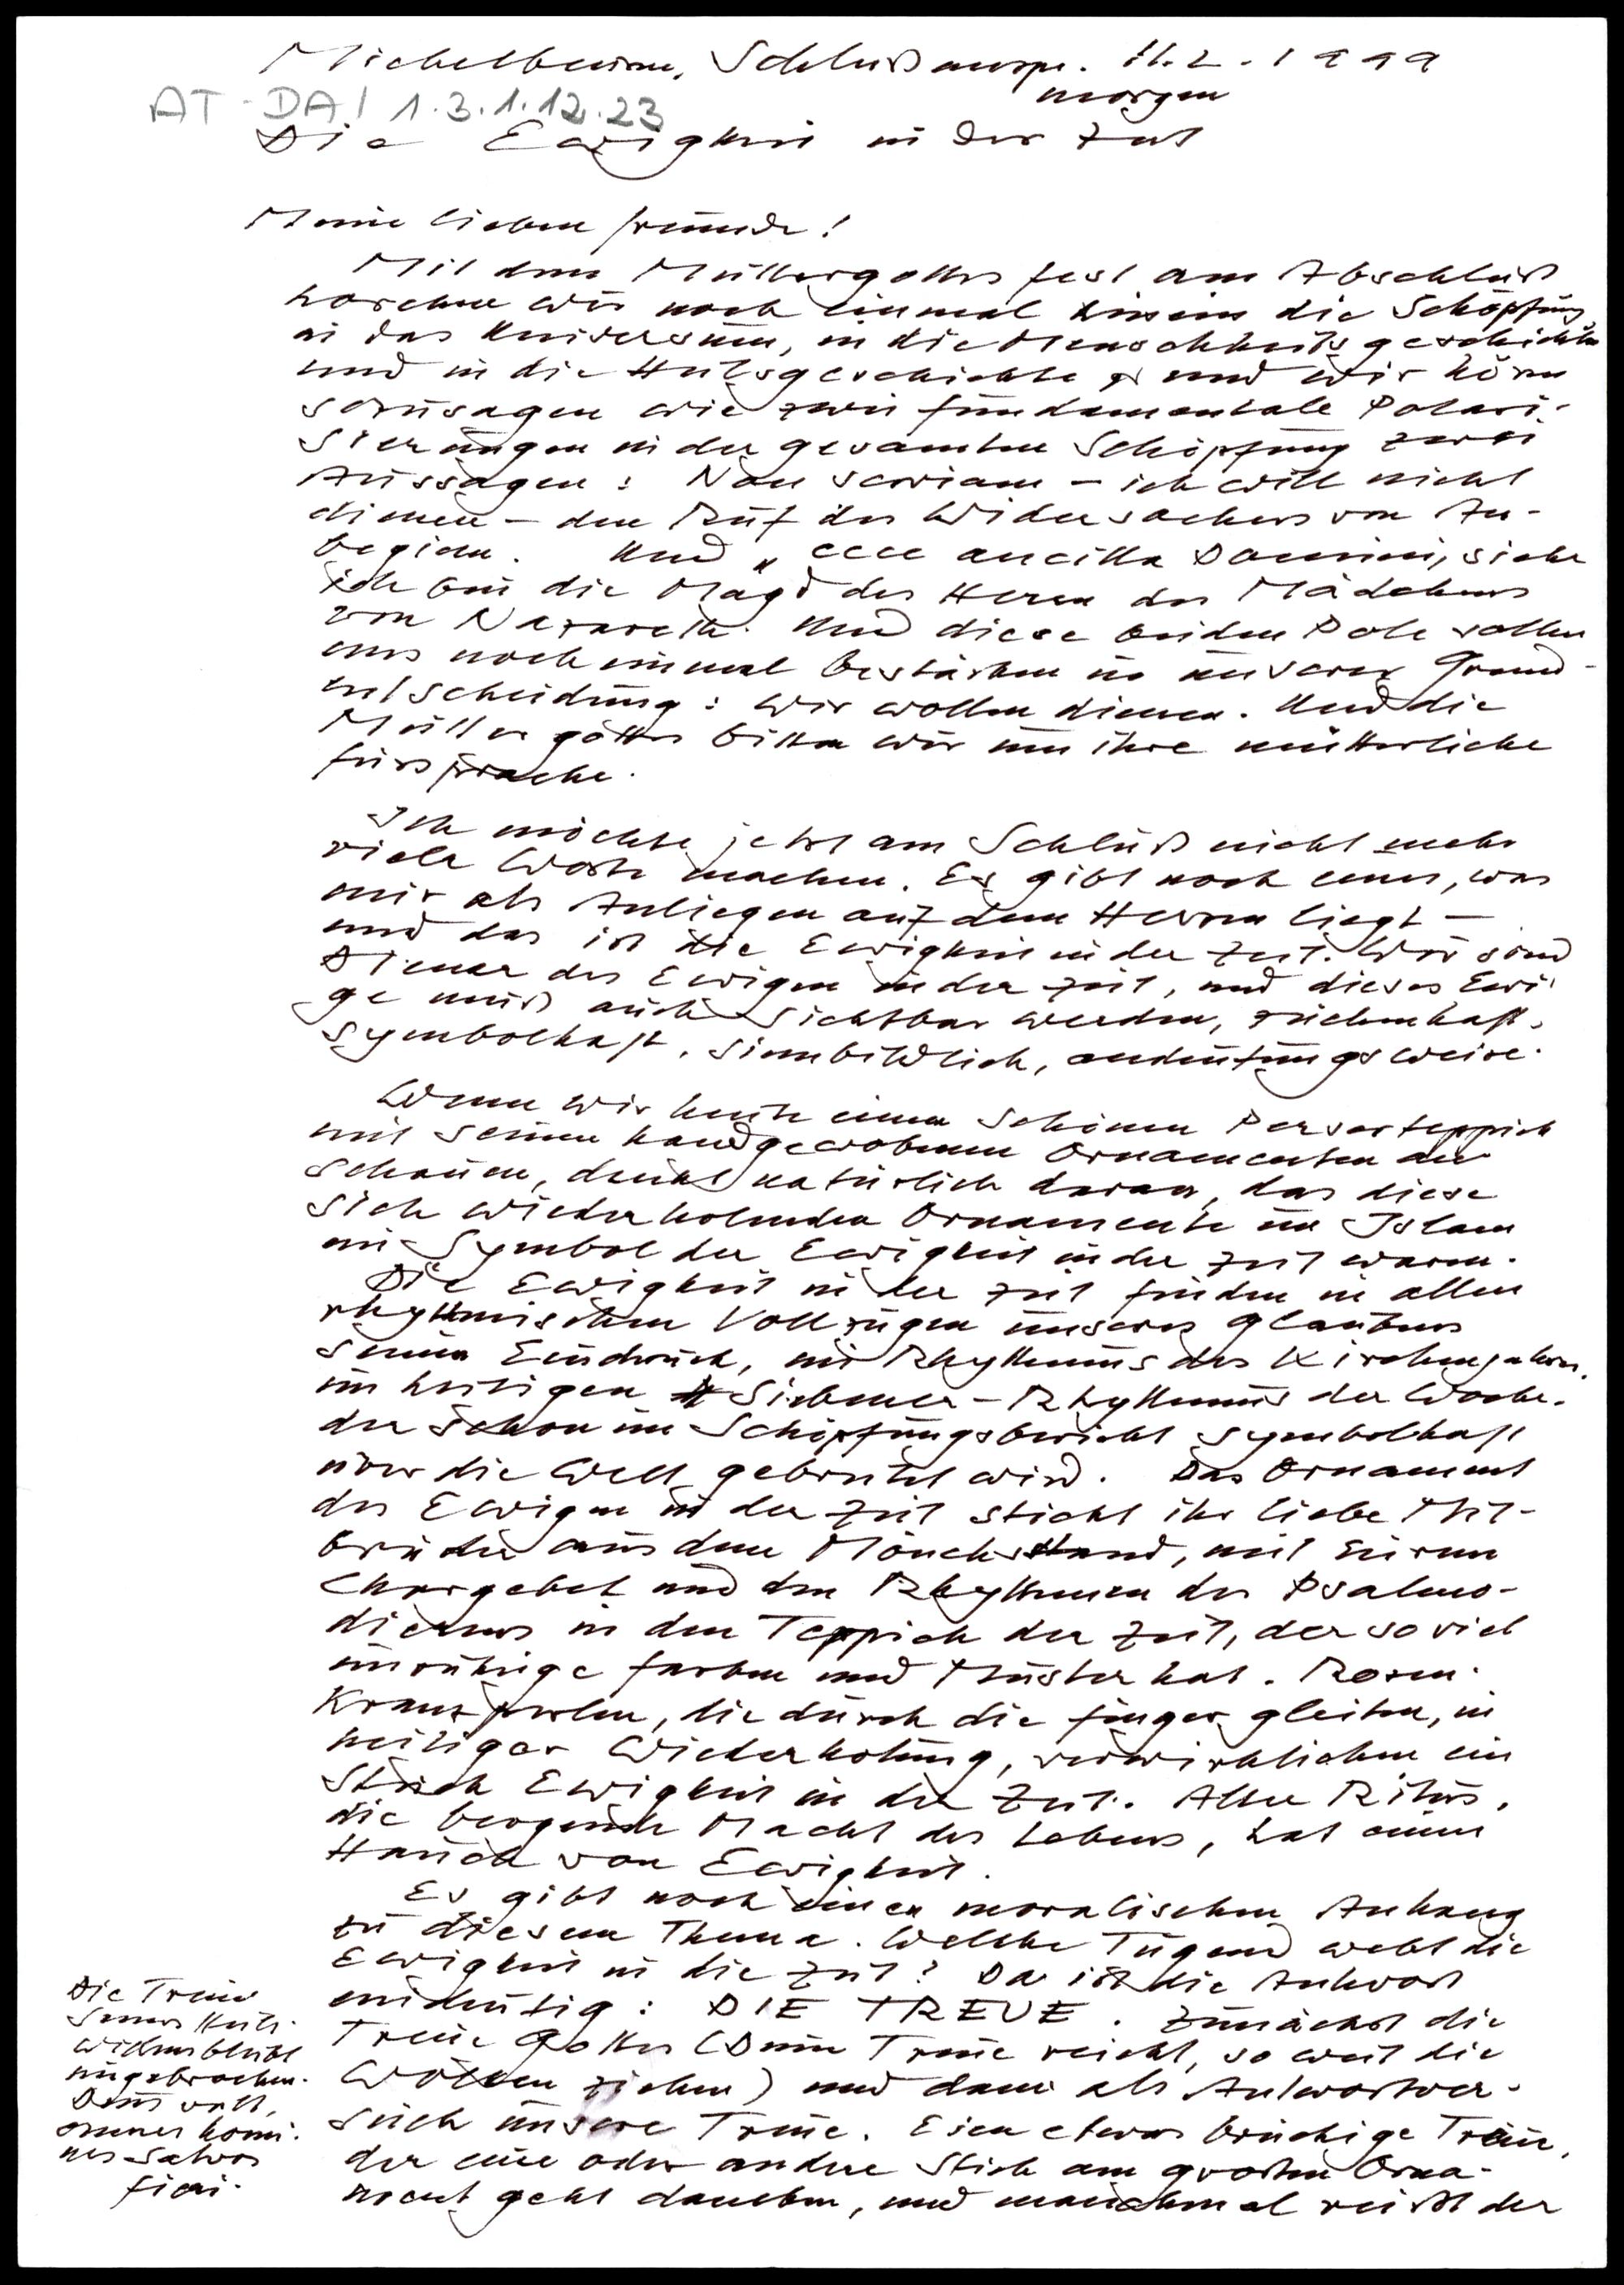 Michelbeuern, Schlußanspr. 11.2.1999
morgen
AT-DA/ 1.3.1.12.23
Die Ewigkeit in der Zeit
Meine lieben Freunde!
Mit dem Muttergottesfest am Abschluß
horchen wir noch einmal hinein die Schöpfung
in das Universum, in die Menschheitsgeschichte
und in die Heilsgeschichte und wir hören
sozusagen wie zwei fundamentale Polari-
sierungen in der gesamten Schöpfung zwei
Aussagen: Non serviam - ich will nicht
dienen - den Ruf des Widersachers von An-
beginn. Und „ecce ancilla Domini, siehe
ich bin die Magd des Herrn des Mädchens
von Nazareth. Und diese beiden Pole sollen
uns noch einmal bestärken in unserer Grund-
entscheidung: Wir wollen dienen. Und die
Muttergottes bitten wir um ihre mütterliche
Fürsprache.
Ich möchte jetzt am Schluß nicht mehr
viele Worte machen. Es gibt noch eines, was
mir als Anliegen auf dem Herzen liegt -
und das ist die Ewigkeit in der Zeit. Wir sind
Diener des Ewigen in der Zeit, und dieses Ewi-
ge muß auch sichtbar werden, zeichenhaft,
symbolhaft, sinnbildlich, andeutungsweise.
Wenn wir heute einen schönen Perserteppich
mit seinen handgewobenen Ornamenten an-
schauen, denkt natürlich daran, das diese
sich wiederholenden Ornamente im Islam
ein Symbol der Ewigkeit in der Zeit waren.
Die Ewigkeit in der Zeit finden in allen
rhythmischen Vollzügen unseres Glaubens
seinen Eindruck, im Rhythmus des Kirchenjahres,
im heiligen Siebener-Rhythmus der Woche,
der schon im Schöpfungsbericht symbolhaft
über die Welt gebreitet wird. Das Ornament
des Ewigen in der Zeit stickt ihr liebe Mit-
brüder aus dem Mönchsstand, mit Eurem
Chorgebet und den Rhythmen des Psalmo-
dierens in den Teppich der Zeit, der so viel
unruhige Farben und Muster hat. Rosen-
kranzperlen, die durch die Finger gleiten, in
heiliger Wiederholung, verwirklichen ein
Stück Ewigkeit in der Zeit. Alter Ritus,
die bergende Macht des Lebens, hat einen
Hauch von Ewigkeit.
Es gibt noch einen moralischen Anhang
zu diesem Thema. Welche Tugend webt die
Ewigkeit in die Zeit? Da ist die Antwort
eindeutig: DIE TREUE. Zunächst die
Treue Gottes (Deine Treue reicht, so weit die
Wolken ziehen) und dann als Antwortver-
such unsere Treue. Eine etwas brüchige Treue,
der eine oder andere Stich am großen Orna-
ment geht daneben, und manchmal reißt der
Die Treue
seines Heils-
willens bleibt
ungebrochen.
Deus vult,
omnes homi-
nes salvos
fieri.